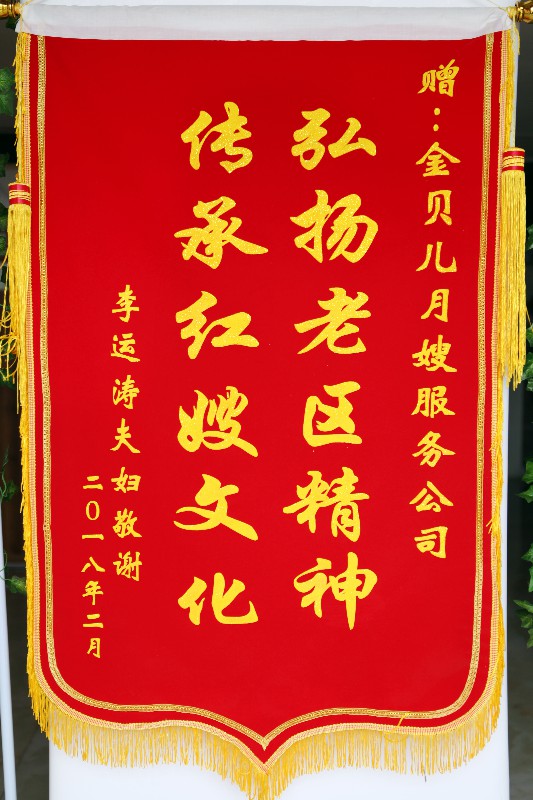 赠：金贝儿月嫂服务公司
弘扬老区精神
传承红嫂文化
李运涛夫妇敬谢
二0一八年二月